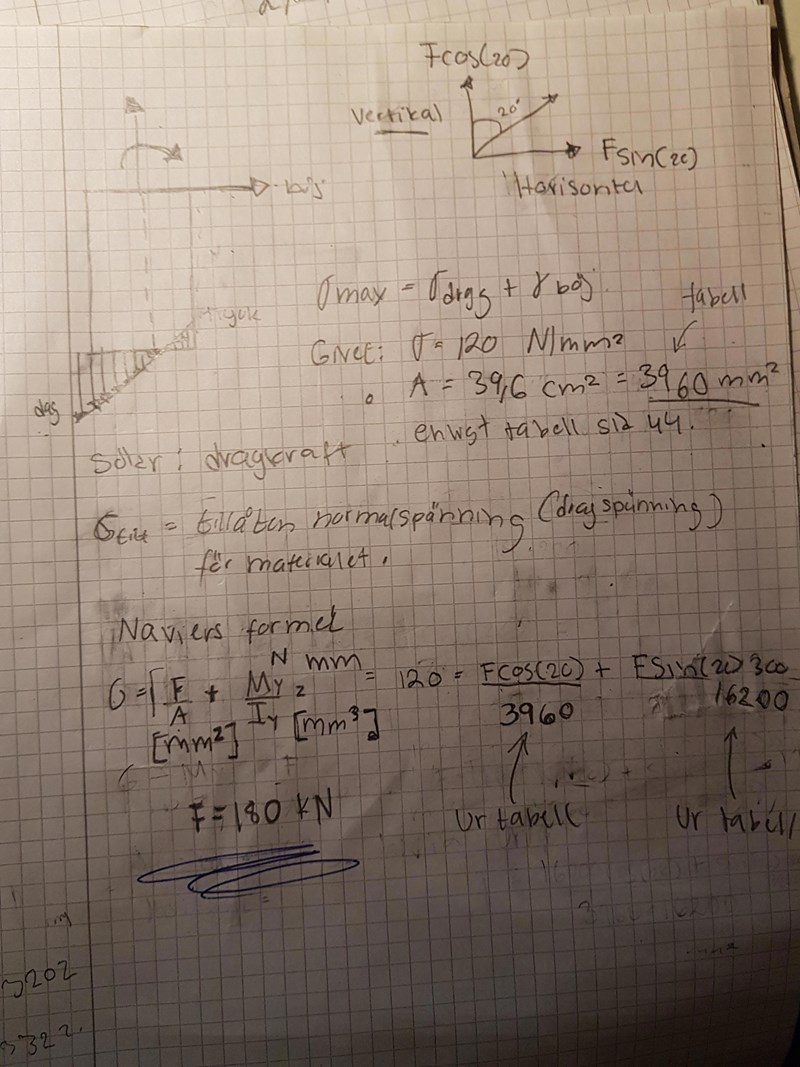 Fcos(20)
Vertikal
20°
Fsin(20)
Horisontel
böj
σmax = σdrag + γ böj.
tabell
Givet: σ = 120 N/mm²
A = 39,6 cm² = 3960 mm²
enligt tabell sid 44.
drag
Söker: dragkraft
σtill = tillåten normalspänning (dragspänning)
för materialet.
Naviers formel
N mm
σ = F/A + My/Iy z = 120 = Fcos(20)/3960 + FSin(20) 300/16200
[mm²] [mm³]
F = 180 kN
Ur tabell
Ur tabell
3202
322.